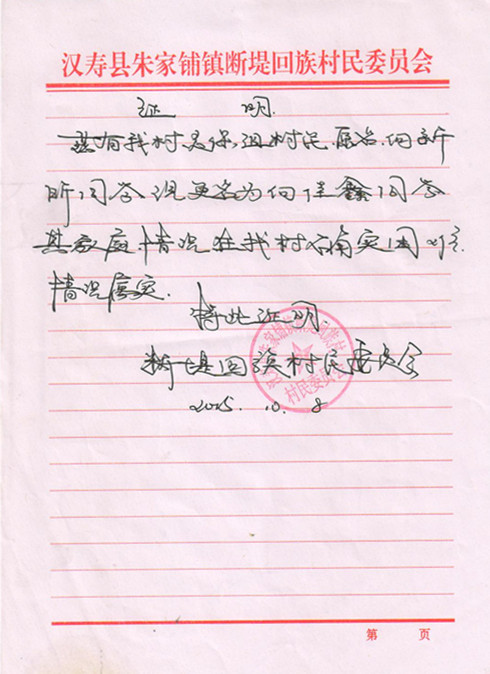 汉寿县朱家铺镇断堤回族村民委员会
证 明
兹有我村吴保组村民原名向新
昕同学现更名为向佳鑫同学
其家庭情况在我村的确实困难
情况属实.
特此证明
断堤回族村民委员会
2005.10.8
村民委员会
第 页